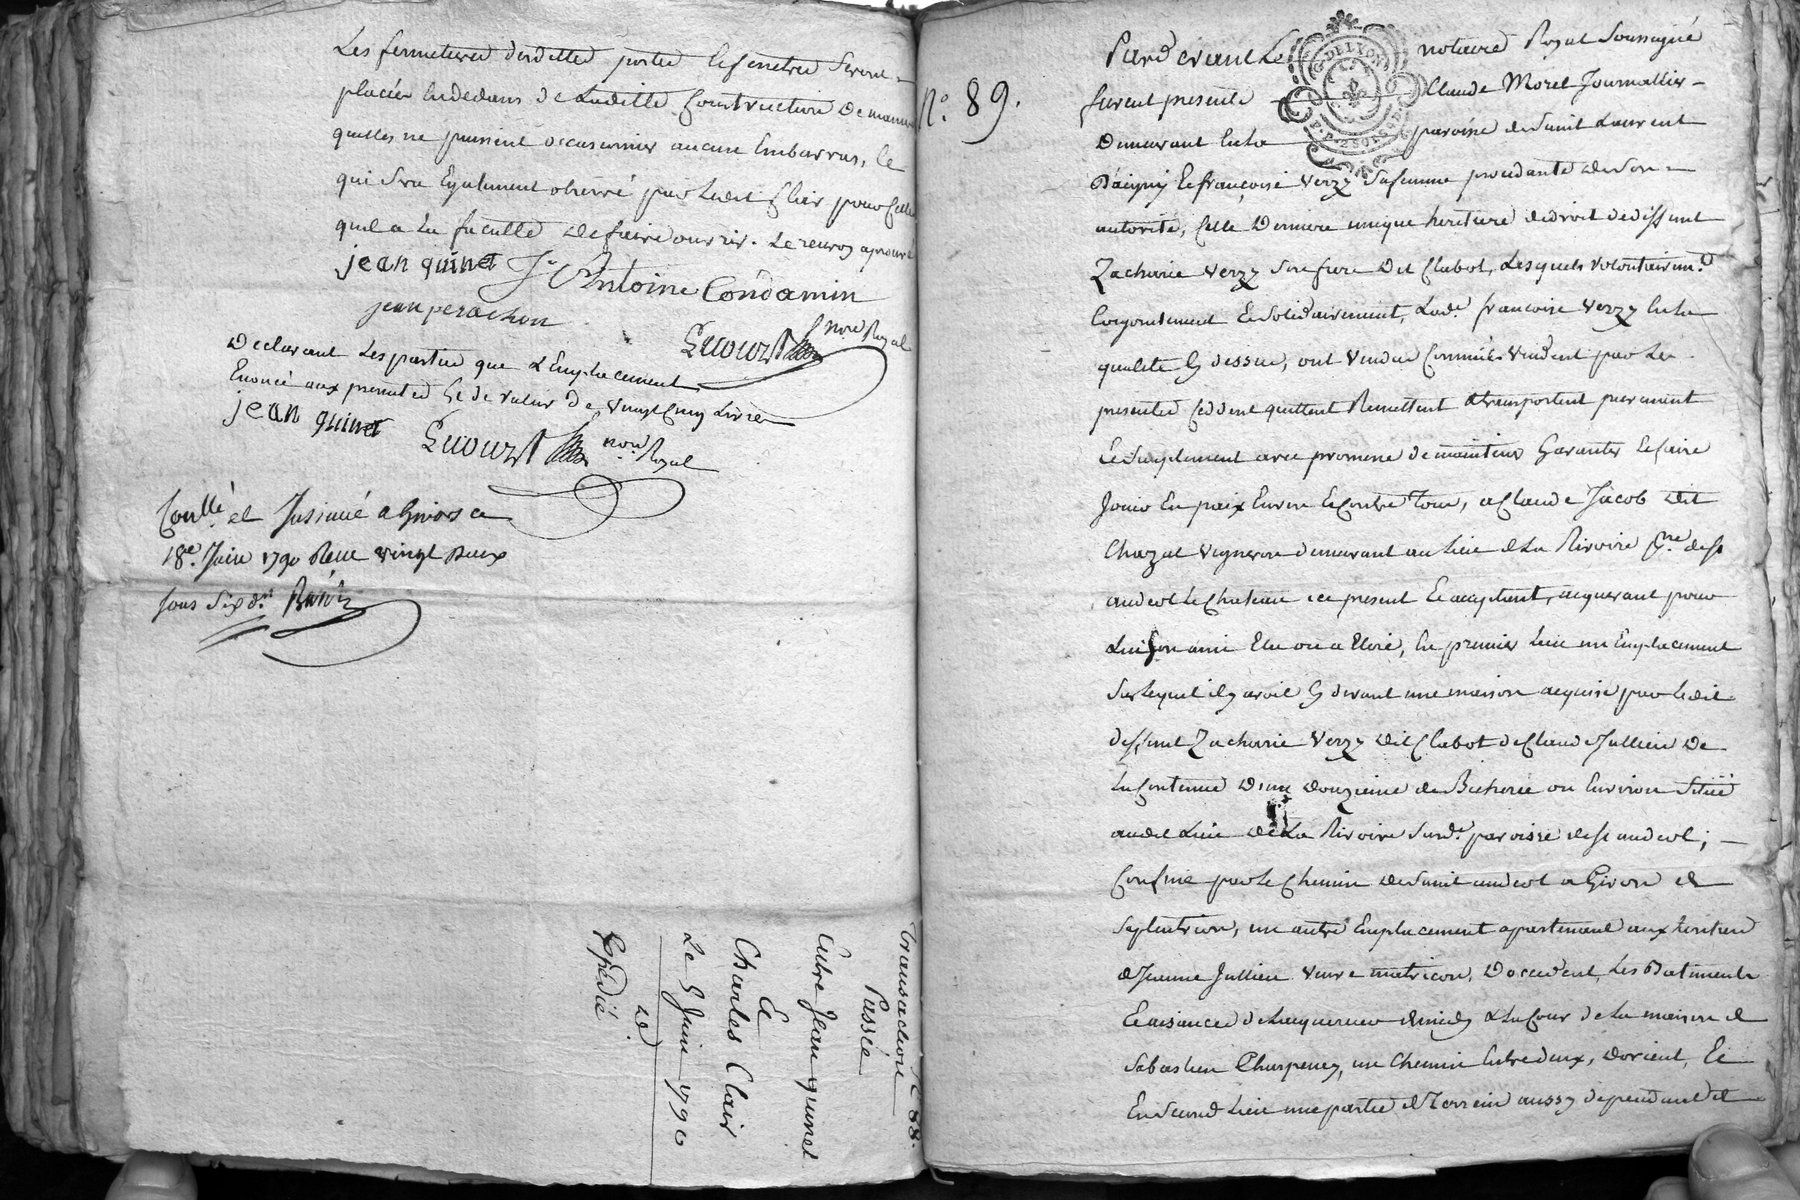 Les fermetures desdittes portes et fenetres seront
placées en dedans de Laditte Construction de maniere
quelles ne puissent occasionner aucun Embarras, ce
qui sera Egalement observé par Ledit Clair pour Celle
quil a La faculté de faire ouvrir. Le renvoy aprouvé
jean quinet J. Antoine Condamin
jean perachon
Lecourt nore Royal
Declarant Les parties que L'Emplacement
Enoncé aux presentes Est de valeur de vingt Cinq Livres
jean quinet
Lecourt nore Royal
Conllé et Insinué a Givors ce
18e Juin 1790 Reçu vingt deux
sous six drs
No 88.
transaction
Passée
Entre Jean quinet
Et
Charles Clair
Le 9 Juin 1790
Expédié.
No. 89.
G. DE LYON
Pardevant Le notaire Royal Soussigné
furent presents Claude Morel Journallier
Demeurant en la paroisse de Saint Laurent
D'aigny Et françoise Verzy sa femme procedante de son
autorité, Cette Derniere unique heritiere de droit de deffunt
Zacharie Verzy son frere Dit Clabot, Lesquels volontairemt
Conjointement Et Solidairement, Lade françoise Verzy en la
qualité Cy dessus, ont vendu Comme ils vendent par Les
presentes Cedent quittent Remettent et transportent purement
Et Simplement avec promesse de maintenir Garantir Et faire
Jouir En paix Envers Et Contre Tous, a Claude Jacob dit
Chazal vigneron demeurant au Lieu de La Rivoire psse de St
andeol Le Chateau ici present Et acceptant, acquerant pour
Lui son ami Elu ou a Elire, En premier Lieu un Emplacement
sur Lequel il y avoit Cy devant une maison acquise par Ledit
deffunt Zacharie Verzy dit Clabot de Claude Jullien De
La Contenue D'une douzieme de Bicherée ou Environ Situé
audit Lieu de La Rivoire Susde paroisse de St andeol;
Confiné par Le Chemin de Saint andeol a Givors de
Septentrion, un autre Emplacement apartenant aux heritiers
de Jeanne Jullien veuve matricon, Doccident, Les Batiments
Et aisances de Lacquereur de midy & La Cour de La maison de
Sebastien Charpenay, un Chemin Entre deux, dorient, Et
En Second Lieu une partie de Terrein aussy dépendant de